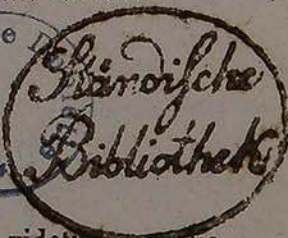 Ständiſche
Bibliothek